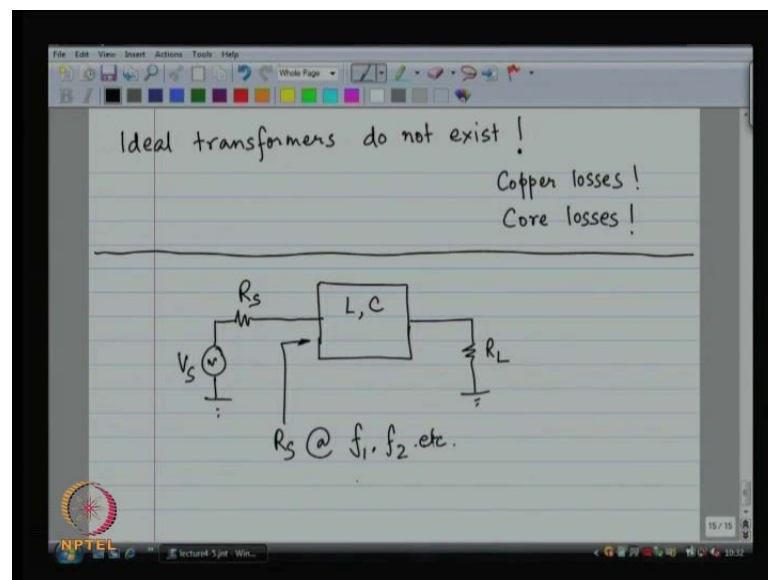 File Edit View Insert Actions Tools Help
Whole Page
Ideal transformers do not exist !
Copper losses !
Core losses !
R_S
L, C
V_S
R_L
R_S @ f_1, f_2 etc.
15 / 15
NPTEL
lecture4-5.jnt - Win...
10:32